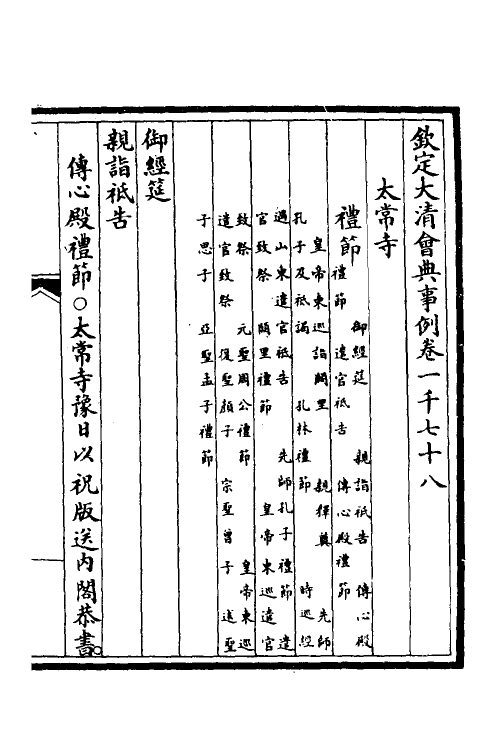 欽定大清會典事例卷一千七十八
太常寺
禮節
御經筵 親詣祗告 傳心殿
禮節 遣官祗告 傳心殿禮節
皇帝東巡詣闕里 親釋奠 先師
孔子及祗謁 孔林禮節 時巡經
過山東遣官祗告 先師孔子禮節 遣
官致祭 闕里禮節 皇帝東巡遣官
致祭 元聖周公禮節 皇帝東巡
遣官致祭 復聖顏子 宗聖曾子 述聖
子思子 亞聖孟子禮節
御經筵
親詣祗告
傳心殿禮節○太常寺豫日以祝版送內閣恭書○